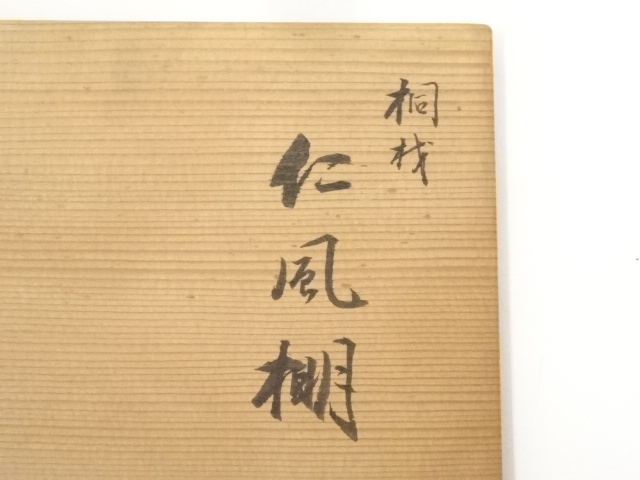 桐材
仁風棚